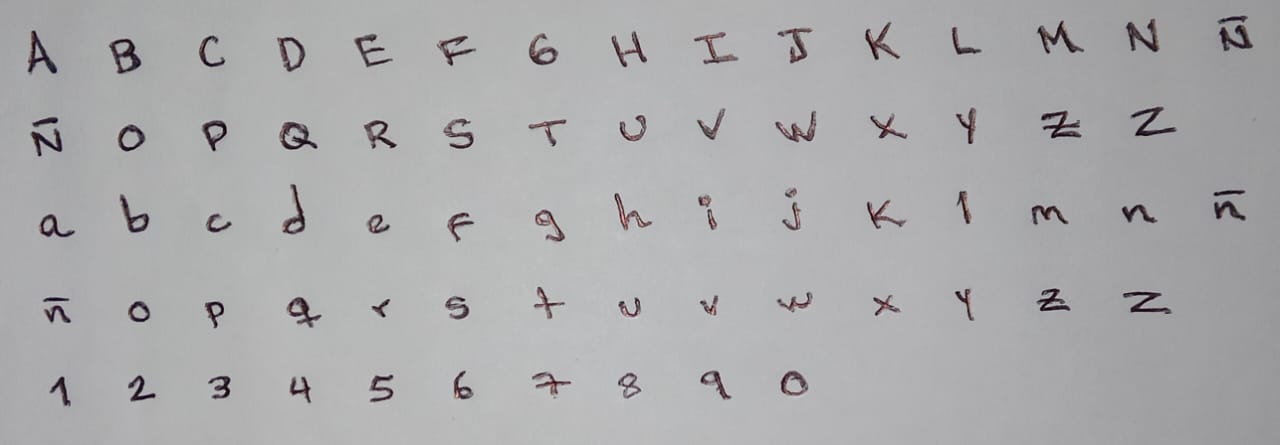 A B C D E F G H I J K L M N Ñ
Ñ O P Q R S T U V W X Y Z Z
a b c d e f g h i j k l m n ñ
ñ o p q r s t u v w x y z z
1 2 3 4 5 6 7 8 9 0